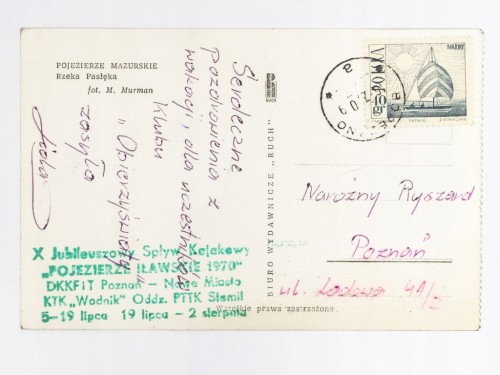 POJEZIERZE MAZURSKIE
Rzeka Pasłęka
fot. M. Murman
Serdeczne
pozdrowienia z
wakacji, dla uczestników
Klubu
„Obieżyświaty"
zasyła
X Jubileuszowy Spływ Kajakowy
„POJEZIERZE IŁAWSKIE 1970"
DKKFiT Poznań — Nowe Miasto
KTK „Wodnik" Oddz. PTTK Stomil
5-19 lipca 19 lipca — 2 sierpnia
BIURO WYDAWNICZE „RUCH"
RUCH
40 gr
Narożny Ryszard
Poznań
ul.
Wszelkie prawa zastrzeżone